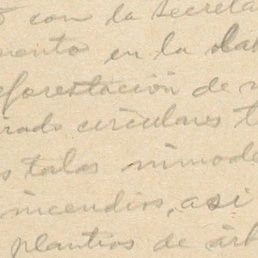 con la Secreta
mento en la lab
eforestación de
irado circulares
s talas inmode
incendios, asi
plantíos de árb